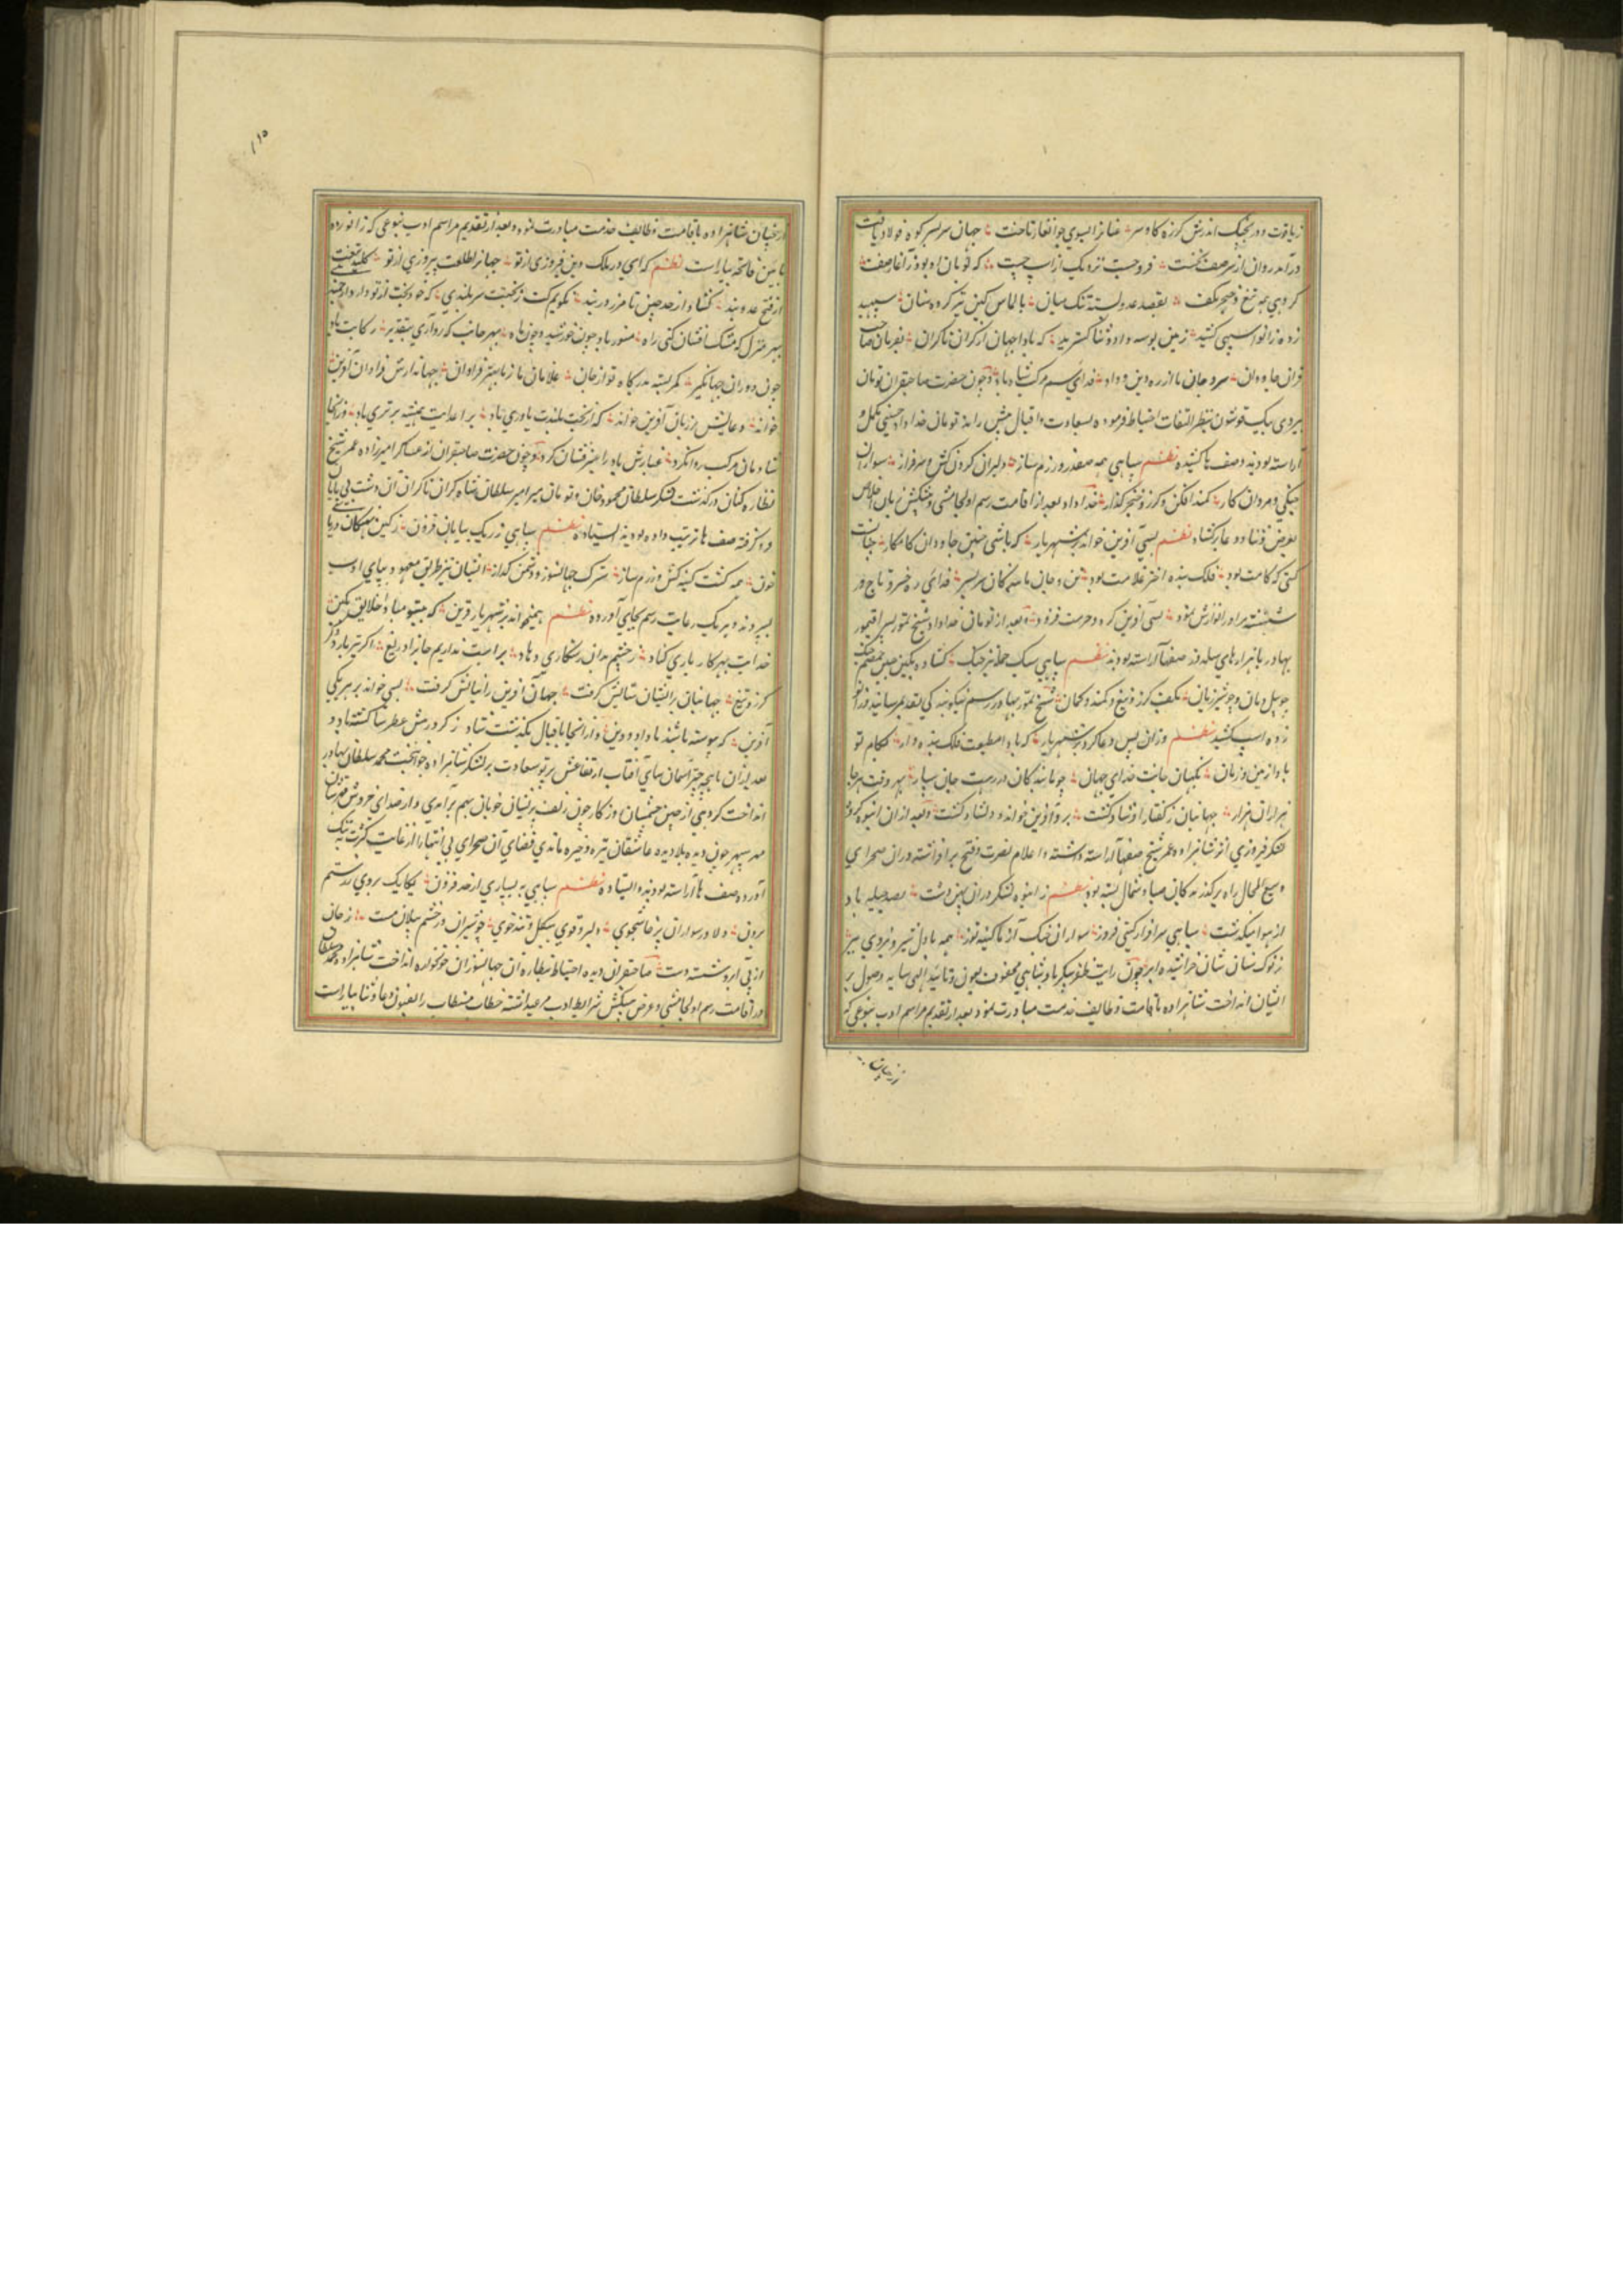 زیاقوت و در بخیک اندرش گرزه کاوسر عنانرا بسوی جوانغار تاخت جهان سر بسر کوه فولاد یافت
درآمد روان از سر صف نخست فرو جست نزدیک از اسپ چست که تومان او بود
گروهی همه تیغ و خنجر بکف بقصد عدو بسته تنگ میان بالماس کین تیز کرده سنان سپهبد
زده زانو اسپی کشید زمین بوسه داد و ثنا گسترید که بادا جهان از کران تا کران بفرمان صاحب
قران جاودان سر و جان ما از ره دین و داد فدای سم مرکب شاه باد و چون حضرت صاحبقران تومان
بیردی بیک قوشون بنظر التفات احتیاط فرمود و بسعادت و اقبال پیش راند تومان خداداد حسینی مکمل و
آراسته بودند و صف ها کشیده نظم سپاهی همه صفدر و رزم ساز دلیران گردن کش و سرفراز سواران
جنگی و مردان کار کمند افکن و گرز و خنجر گذار خداداد بعد از اقامت رسم اولجامیشی و پیشکش زبان اخلاص
بعرض و ثنا و دعا برگشاد نظم بسی آفرین خواند بر شهریار که باشی چنین جاودان کامکار چنانت
گیتی که کامت بود فلک بنده اختر غلامت بود تن و جان ما بندگان سر بسر فدای ره خسرو تاج ور
شهنشه مر او را نوازش نمود بسی آفرین کرد و حرمت فزود و بعد از تومان خداداد شیخ تمور پسر اقتمور
بهادر با هزارهای سلدوز صفها آراسته بودند نظم سپاهی سبک حمله تیز جنگ گشاده بکین
چو پیل دمان و چو شیر ژیان بکف گرز و تیغ و کمند و کمان شیخ تمور بهادر رسم نیکو بندگی بتقدیم رسانید و زانو
زده اسپ کشید نظم وزان پس دعا کرد بر شهریار که بادا مطیعت فلک بنده وار بکام تو
باد از مین و زمان نگهبان جانت خدای جهان چو ما بندگان در رهت جان سپار بهر وقت هر جا
هزاران هزار جهانبان ز گفتار او شاد گشت برو آفرین خواند و دلشاد گشت و بعد از ان انبوه گروه
لشکر فیروزی اثر شاهزاده عمر شیخ صفها آراسته داشته و اعلام نصرت و فتح برافراشته در ان صحرای
وسیع المجال راه بر گذرندکان صبا و شمال بسته بود نظم ز انبوه لشکر در ان پهن دشت بصد حیله باد
از هوا میگذشت سپاهی سرافراز گیتی فروز سواران خنک آز ما کینه توز همه با دل شیر و نیروی ببر
ز نوک سنان شان خراشیده ابر چون رایت ظفر پیکر پادشاهی محفوف بعون و تأیید الهی سایه وصول بر
ایشان انداخت شاهزاده باقامت وظایف خدمت مبادرت نمود بعد از تقدیم مراسم ادب بنوعی که
از بخیان شاهزاده باقامت وظایف خدمت مبادرت نموده و بعد از تقدیم مراسم ادب بنوعی که زانو زده
فاتحه بیاراست نظم که ای در ملک و دین فیروزی از تو جهانرا طلعت پیروزی از تو کلید بخت
از فتح عدو بند گشاد از حد چین تا مرز دربند نگویم کت ز بختست سربلندی که خود بخت از تو دارد ارجمندی
بهر منزل که مشک افشان کنی راه منور باد چون خورشید و چون ماه بهر جانب که رو آری بتقدیر رکابت باد
چون دوران جهانگیر کمر بسته بدرگاه تو از جان غلامان ما ز ما بهتر فراوان جهاندارش فراوان آفرین
خواند دعایش بر زبان آفرین خواند که از بخت بلندت یاوری باد بر اعدایت همیشه برتری باد وز انجا
شادمان مرکب روان کرد غبارش باد را عنبرفشان کرد و چون حضرت صاحبقران از عساکر امیرزاده عمر شیخ
نظاره کنان درگذشت لشکر سلطان محمود خان و تومان میر امیر سلطان شاه کران تا کران آن دشت بی پایان
فرا گرفته صف ها ترتیب داده بودند و ایستاده نظم سپاهی ز ریگ بیابان فزون زکین همگان
خون همه گشت کینه کش و رزم ساز سترک جهانسوز و دشمن گداز ایشان نیز طریق معهود و بپای ادب
سپردند و هر یک رعایت رسم بجای آورده نظم همیخواند بر شهریار آفرین که بیتو مبادا خلایق مکین
خدایت بهر کار یاری کناد ز خشم بدان رستکاری دهاد براهت نداریم جانرا دریغ اگر تیر بارد وگر
گرز و تیغ جهانبان بر ایشان ستایش گرفت جهان آفرین را نیایش گرفت بسی خواند بر هر یکی
آفرین که پیوسته باشند با داد و دین و از انجا باقبال بگذشت شاد ز گرد رهش عطرسا گشته باد و
بعد ازان ماهچه چتر آسمان سای آفتاب ارتفاعش پرتو سعادت بر لشکر شاهزاده جوانبخت محمد سلطان بهادر
انداخت گروهی از چین چشمشان روزگار چون زلف پریشان خوبان بهم برآمدی و از صدای خروش
مهر سپهر چون دیده بلا دیده عاشقان تیره و خیره ماندی فضای آن صحرای بی انتها را از غایت کثرت تنگ
آورده صف ها آراسته بودند و ایستاده نظم سپاهی به بسیاری از حد فزون یکایک بروی از رستم
برون دلاور سواران پرخاشجوی دلیر و قوی هیکل و تندخوی چو شیران و در خشم پیلان مست ز جان
از پی آبرو شسته دست صاحبقران دیده احتیاط بنظاره آن جهانسوزان خونخواره انداخت شاهزاده محمد سلطان
در اقامت رسم اولجامیشی و عرض پیشکش شرایط ادب مرعی داشته خطاب مستطاب را بفنون دعا و ثنا بیاراست